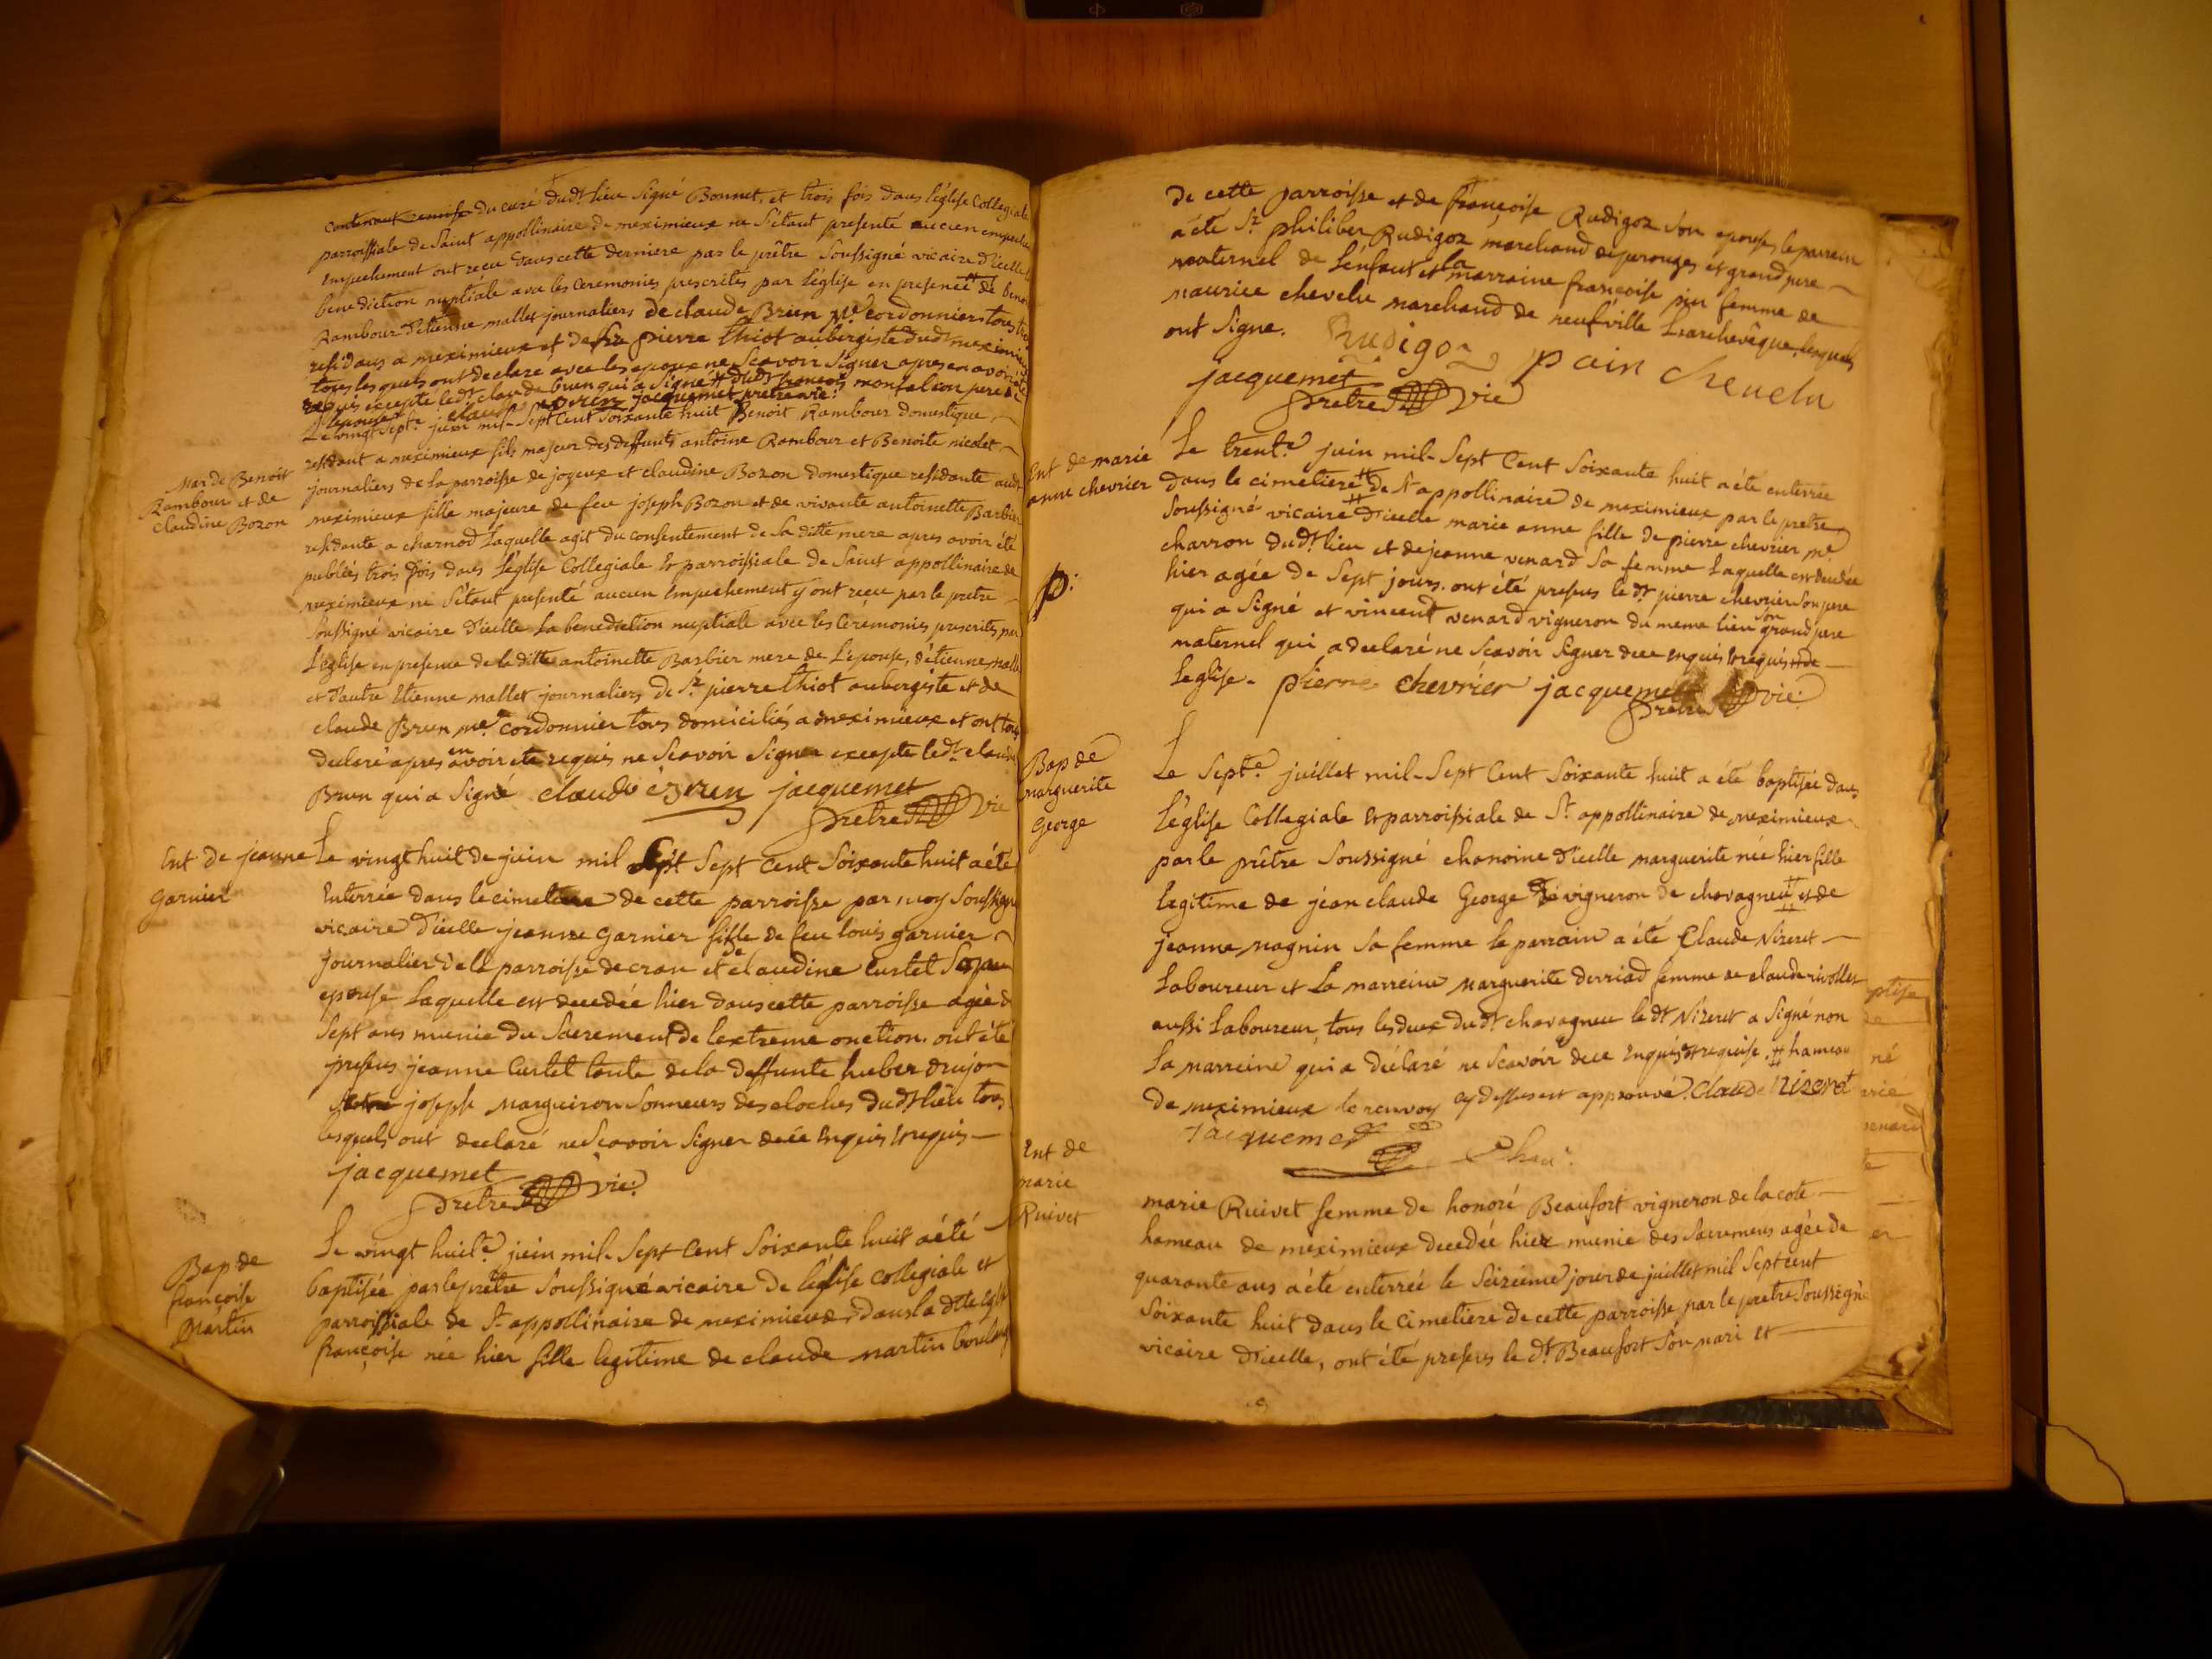 contenant remise du curé dudt lieu signé Bonnet, et trois fois dans l'église Collegiale
parroissiale de Saint appollinaire de meximieux ne s'étant presenté aucun
empechement ont reçu dans cette derniere par le prêtre soussigné vicaire d'icelle
benediction nuptiale avec les ceremonies prescrites par l'église en presence de
Rambour d'etienne mallet journaliers de claude Brun me cordonnier tous
residans a meximieux et de pierre thiot aubergiste dudt
tous lesquels ont declaré avec les epoux ne scavoir signer apres en avoir
requis excepté ledt claude brun qui a signé # dudt françois monfalcon pere de
l'epouse claude brun jacquemet pretre vic:
Le vingt septe juin mil-sept cent soixante huit Benoit Rambour domestique
residant a meximieux fils majeur des deffunts antoine Rambour et Benoite nicolet
journaliers de la parroisse de joyeux et claudine Bozon domestique residante audt
meximieux fille majeure de feu joseph Bozon et de vivante antoinette Barbier
residante a charnod laquelle agit du consentement de sa ditte mere apres avoir été
publiés trois fois dans l'église Collegiale & parroissiale de Saint appollinaire de
meximieux ne s'étant presenté aucun empechement y ont reçu par le pretre
soussigné vicaire d'icelle la benediction nuptiale avec les ceremonies prescrites par
l'église en presence de la ditte antoinette Barbier mere de l'epouse, d'étienne mallet
et d'autre Etienne mallet journaliers de Sr pierre thiot aubergiste et de
claude Brun me cordonnier tous domiciliés a meximieux et ont tous
declaré apres en avoir été requis ne scavoir signer excepté ledt claude
Brun qui a signé claude brun jacquemet
pretre vic
Mar de Benoit
Rambour et de
Claudine Bozon
Ent de jeanne
garnier
Le vingt huit de juin mil sept cent soixante huit a été
enterrée dans le cimetiere de cette parroisse par moy soussigné
vicaire d'icelle jeanne garnier fille de feu louis garnier
journalier de la parroisse de cran et de claudine curtet sa
epouse laquelle est decedée hier dans cette parroisse agée de
sept ans munie du sacrement de l'extreme onction. ont été
presens jeanne Curtet tante de la deffunte huber drujon
joseph marguiron sonneurs des cloches dudt lieu tous
lesquels ont declaré ne scavoir signer de ce enquis & requis
jacquemet
pretre vic:
Bap de
françoise
Martin
Le vingt huite juin mil-sept cent soixante huit a été
baptisée par le prêtre soussigné vicaire de l'eglise collegiale et
parroissiale de St appollinaire de meximieux dans la dtte eglise
françoise née hier fille legitime de claude martin
de cette parroisse et de françoise Rudigoz son epouse, le parrein
a été Sr philiber Rudigoz marchand de perouges et grand pere
maternel de l'enfant et la marraine françoise pin femme de
maurice chevelu marchand de neufville l'archevêque lesquels
ont signé. Rudigoz pain chevelu
jacquemet
pretre vic
Ent de marie
anne chevrier
Le trente juin mil-sept cent soixante huit a été enterrée
dans le cimetiere # de St appollinaire de meximieux par le pretre
soussigné vicaire d'icelle marie anne fille de pierre chevrier me
charron dudt lieu et de jeanne venard sa femme laquelle est decedée
hier agée de sept jours. ont été presens le dt pierre chevrier son pere
qui a signé et vincent venard vigneron du meme lieu son grand pere
maternel qui a declaré ne scavoir signer de ce enquis & requis # de
l'eglise. pierre chevrier jacquemet
pretre vic:
p:
Bap de
marguerite
George
Le septe juillet mil-sept cent soixante huit a été baptisée dans
l'église Collegiale & parroissiale de St appollinaire de meximieux
par le prêtre soussigné chanoine d'icelle marguerite née hier fille
legitime de jean claude George vigneron de chavagneu # et de
jeanne magnin sa femme le parrain a été Claude Nizeret
laboureur et la marreine marguerite derriad femme de claude rivollet
aussi laboureur, tous les deux dudt chavagneu le dt Nizeret a signé non
la marreine qui a déclaré ne scavoir de ce enquise & requise. # hameau
de meximieux le renvoy cy dessus est approuvé. Claude Nizeret
Jacquemet
chan.
Ent de
marie
Ruivet
marie Ruivet femme de honoré Beaufort vigneron de la cote
hameau de meximieux decedée hier munie des sacremens agée de
quarante ans a été enterrée le seizieme jour de juillet mil sept cent
soixante huit dans le cimetiere de cette parroisse par le pretre soussigné
vicaire d'icelle, ont été presens le dt Beaufort son mari et